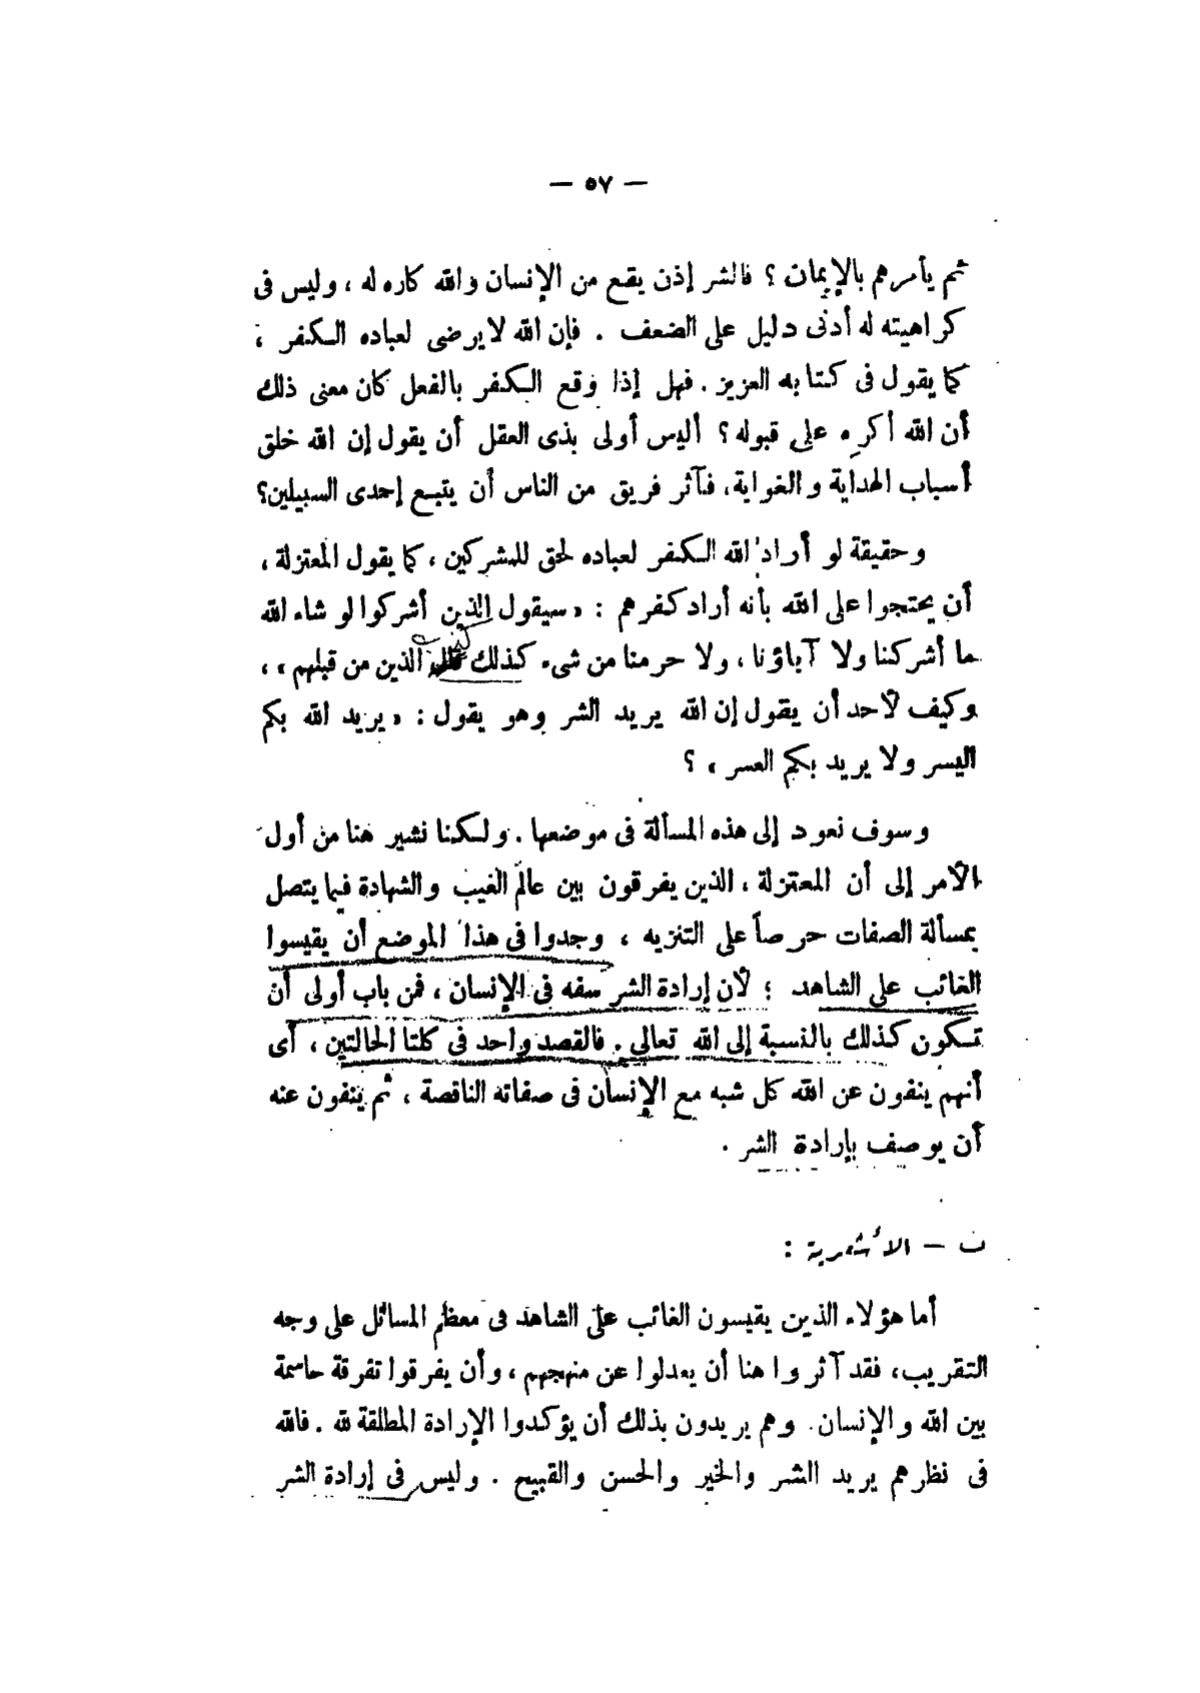 — ٥٧ —
ثم يأمرهم بالإيمان ؟ فالشر إذن يقع من الإنسان والله كاره له ، وليس فى
كراهيته له أدنى دليل على الضعف . فإن الله لا يرضى لعباده الكفر ،
كما يقول فى كتابه العزيز . فهل إذا وقع الكفر بالفعل كان معنى ذلك
أن الله أكره على قبوله ؟ أليس أولى بذى العقل أن يقول إن الله خلق
أسباب الهداية والغواية، فآثر فريق من الناس أن يتبع إحدى السبيلين؟
وحقيقة لو أراد الله الكفر لعباده لحق للمشركين ، كما يقول المعتزلة ،
أن يحتجوا على الله بأنه أراد كفرهم : « سيقول الذين أشركوا لو شاء الله
ما أشركنا ولا آباؤنا ، ولا حرمنا من شىء كذلك الذين من قبلهم » ،
وكيف لأحد أن يقول إن الله يريد الشر وهو يقول : « يريد الله بكم
اليسر ولا يريد بكم العسر » ؟
وسوف نعود إلى هذه المسألة فى موضعها . ولكنا نشير هنا من أول
الأمر إلى أن المعتزلة ، الذين يفرقون بين عالم الغيب والشهادة فيما يتصل
بمسألة الصفات حرصاً على التنزيه ، وجدوا فى هذا الموضع أن يقيسوا
الغائب على الشاهد ؛ لأن إرادة الشر سفه فى الإنسان ، فمن باب أولى أن
تكون كذلك بالنسبة إلى الله تعالى . فالقصد واحد فى كلتا الحالتين ، أى
أنهم ينفون عن الله كل شبه مع الإنسان فى صفاته الناقصة ، ثم ينفون عنه
أن يوصف بإرادة الشر .
ب — الأشعرية :
أما هؤلاء الذين يقيسون الغائب على الشاهد فى معظم المسائل على وجه
التقريب، فقد آثروا هنا أن يعدلوا عن منهجهم ، وأن يفرقوا تفرقة حاسمة
بين الله والإنسان. وهم يريدون بذلك أن يؤكدوا الإرادة المطلقة لله . فالله
فى نظرهم يريد الشر والخير والحسن والقبيح . وليس فى إرادة الشر